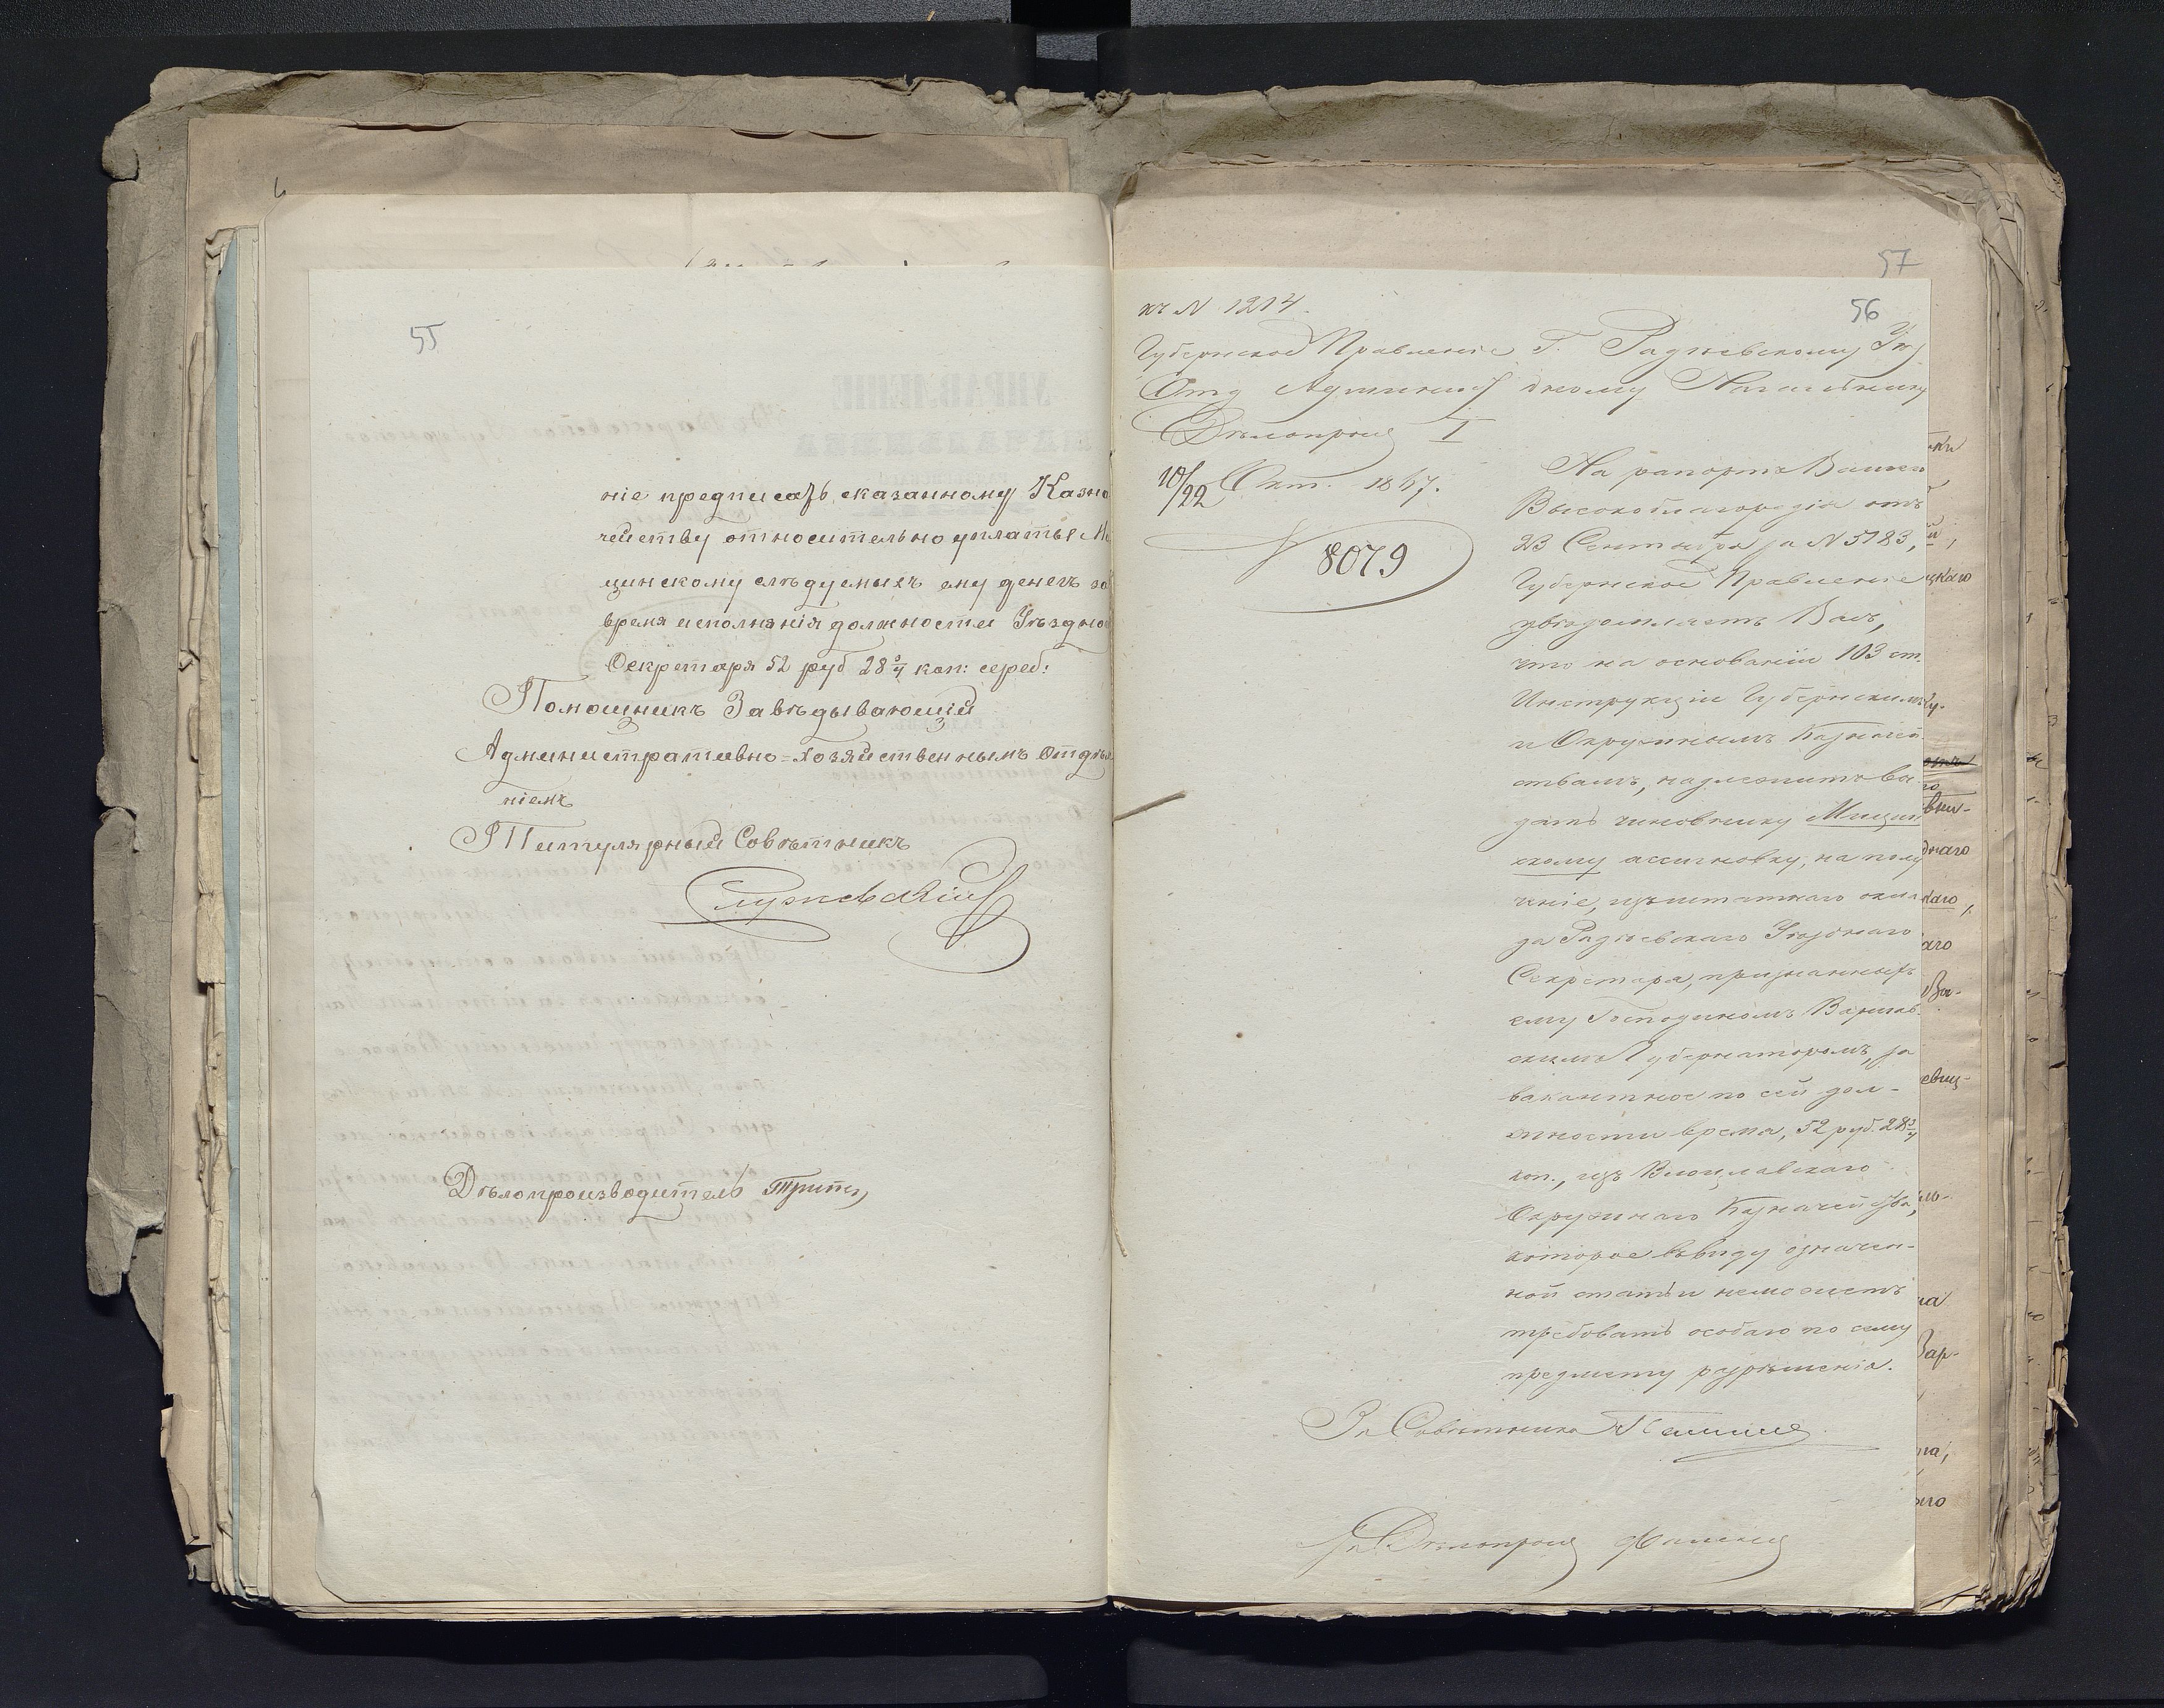 55
ніе предписать сказанному Казно
чейству относительно уплаты Ми
цинскому слѣдуемыхъ ему денегъ за
время исполненія должности Уѣздно
Секретаря 52 руб 28 3/4 коп: сереб:
Помощникъ Завѣдывающій
Административно=Хозяйственнымъ Отдѣл
ніемъ
Титулярный Совѣтникъ
Дѣлопроизводитель
57
56
къ N 1214.
Губернское Правленіе Г. Радѣевскому Уѣз
Отд Админист дному Начальнику
Дѣлопроиз I
10/22 Окт. 1867.
N 8079
На рапортъ Вашего
Высокоблагородія отъ
23 Сентября за N 5183,
Губернское Правленіе
увѣдомляетъ Васъ,
что на основаніи 103 ст.
Инструкціи Губернскимъ
и Окружнымъ Казначей
ствамъ, надлежитъ вы
дать чиновнику Мицин
скому ассигновку, на полу
ченіе, изъ штатнаго окла
да Радѣевскаго Уѣзднаго
Секретаря, признанныхъ
ему Господиномъ Варшав
скимъ Губернаторомъ, за
вакантное по сей дол-
жности время, 52 руб. 28 3/4
коп., изъ Влоцлавскаго
Окружнаго Казначейства,
которое въ виду означен-
ной статьи неможетъ
требовать особаго по сему
предмету разрѣшенія.
За Совѣтника
За Дѣлопроиз